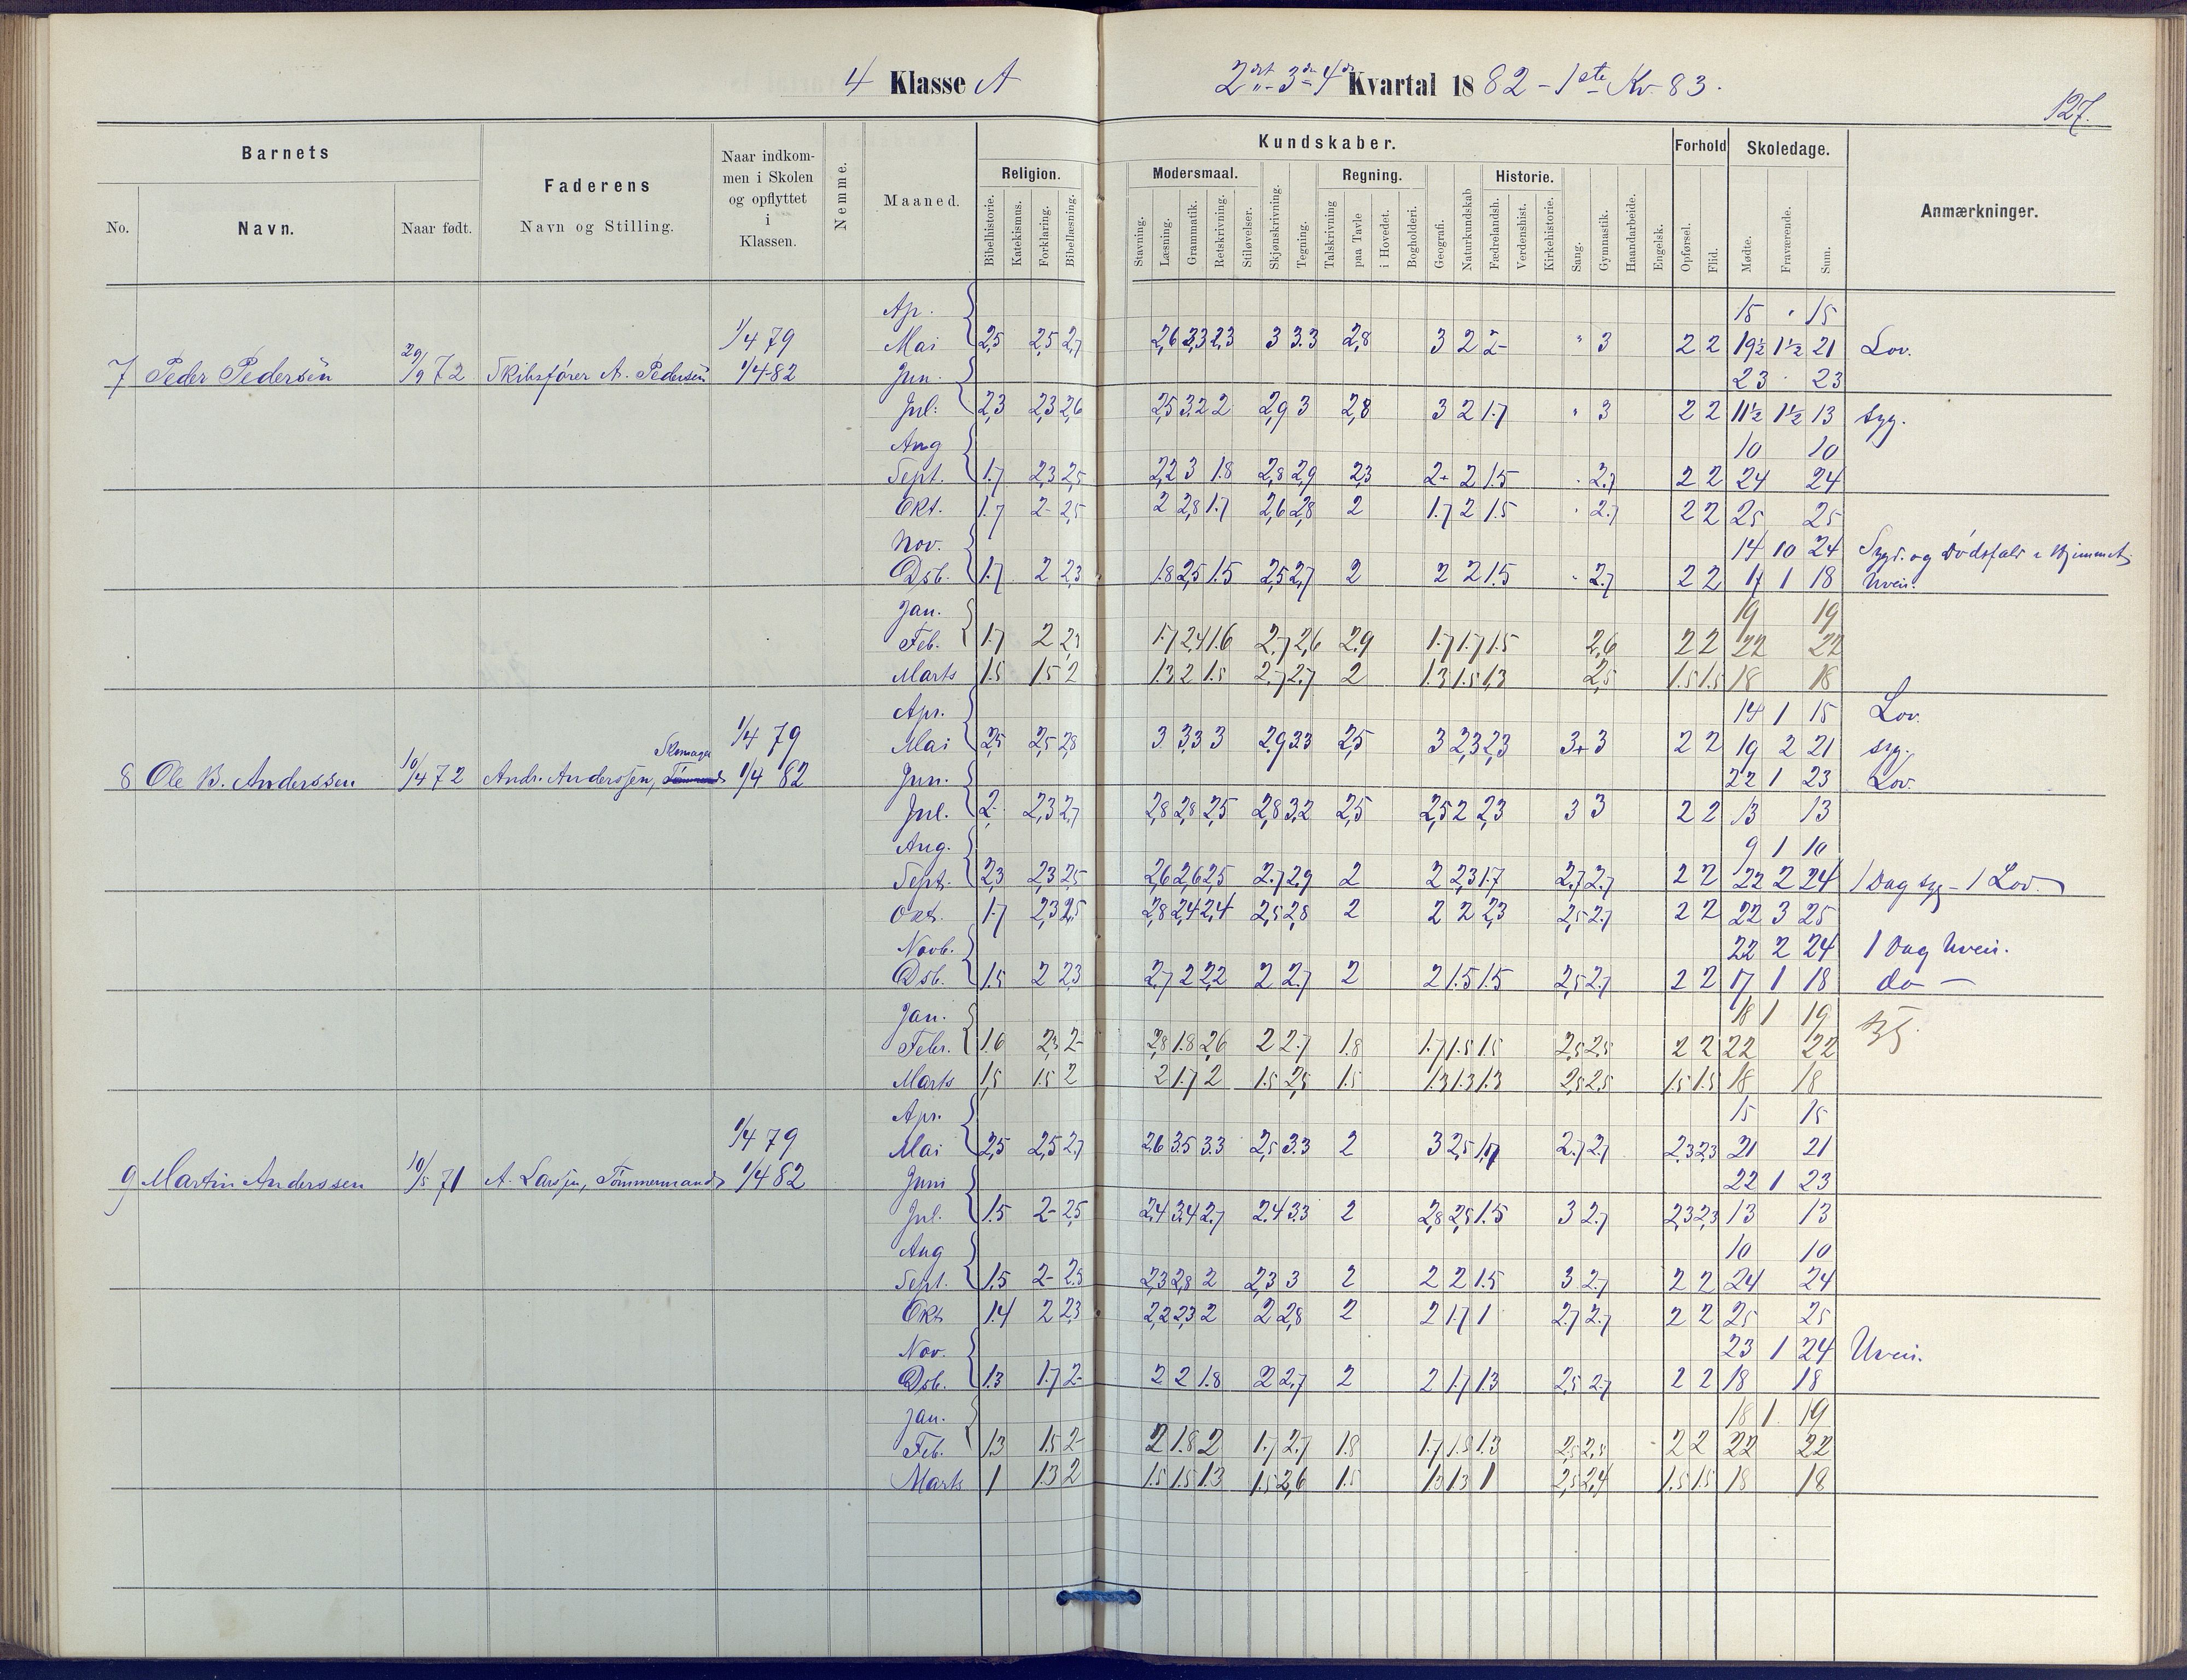 4 Klasse A
2det - 3die - 4de Kvartal 1882 - 1ste Kv. 83.
127.
Barnets
No.
Navn.
Naar født.
Faderens
Navn og Stilling.
Naar indkom-
men i Skolen
og opflyttet
i
Klassen.
Nemme.
Maaned.
Kundskaber.
Religion.
Bibelhistorie.
Katekismus.
Forklaring.
Bibellæsning.
Modersmaal.
Stavning.
Læsning.
Grammatik.
Retskrivning.
Stiløvelser.
Skjønskrivning.
Tegning.
Regning.
Talskrivning
paa Tavle
i Hovedet.
Bogholderi.
Geografi.
Naturkundskab
Historie.
Fædrelandsh.
Verdenshist.
Kirkehistorie.
Sang.
Gymnastik.
Haandarbeide.
Engelsk.
Forhold
Opførsel.
Flid.
Skoledage.
Mødte.
Fraværende.
Sum.
Anmærkninger.
Ap. 15 " 15
1/4 79 Mai 2,5 2,5 2,7 2,6 3,3 2,3 3 3.3 2,8 3 2 2- " 3 2 2 19½ 1½ 21 Lov.
7 Peder Pedersen 29/9 72 Skibsfører A. Pedersen 1/4 82 Jun. 23 " 23
Jul. 2,3 2,3 2,6 2,5 3,2 2 2,9 3 2,8 3 2 1.7 " 3 2 2 11½ 1½ 13 syg.
Aug 10 10
Sept. 1.7 2,3 2,5 2,2 3 1.8 2,8 2,9 2,3 2+ 2 1.5 " 2.7 2 2 24 24
Okt. 1.7 2- 2,5 2 2,8 1.7 2,6 2,8 2 1.7 2 1.5 " 2.7 2 2 25 25
Nov. 14 10 24 Sygd. og Dødsfald i Hjemmet
Dsb. 1.7 2 2,3 1.8 2,5 1.5 2,5 2,7 2 2 2 1.5 " 2.7 2 2 17 1 18 Uveir.
Jan. 19 19
Feb. 1.7 2 2,3 1.7 2,4 1.6 2.7 2,6 2.9 1.7 1.7 1.5 2,6 2 2 22 22
Marts 1.5 1.5 2 1.3 2 1.5 2.7 2.7 2 1.3 1.5 1,3 2,5 1.5 1.5 18 18
Apr. 14 1 15 Lov.
Skomager 1/4 79 Mai 2,5 2,5 2,8 3 3,3 3 2,9 3.3 2,5 3 2,3 2,3 3+ 3 2 2 19 2 21 syg.
8 Ole B. Anderssen 10/4 72 Andr. Anderssen, 1/4 82 Jun. 22 1 23 Lov.
Jul. 2- 2,3 2,7 2,8 2,8 2,5 2,8 3,2 2,5 2,5 2 2,3 3 3 2 2 13 13
Aug. 9 1 10
Sept. 2,3 2,3 2,5 2,6 2,6 2,5 2.7 2.9 2 2 2,3 1.7 2.7 2.7 2 2 22 2 24 1 Dag syg - 1 Lov.
Okt. 1.7 2,3 2,5 2,8 2,4 2,4 2,5 2,8 2 2 2 2,3 2,5 2.7 2 2 22 3 25
Novb. 22 2 24 1 Dag Uveir.
Dsb. 1.5 2 2,3 2.7 2 2,2 2 2.7 2 2 1.5 1.5 2,5 2.7 2 2 17 1 18 do —
Jan. 18 1 19 syg.
Febr. 1.6 2,3 2- 2,8 1.8 2,6 2 2.7 1.8 1.7 1.5 1.5 2,5 2,5 2 2 22 22
Marts 1,5 1.5 2 2 1.7 2 1.5 2,5 1.5 1.3 1.3 1.3 2,5 2,5 1.5 1.5 18 18
Apr. 15 15
1/4 79 Mai 2,5 2,5 2.7 2,6 3.5 3.3 2,5 3.3 2 3 2,5 1,7 2.7 2.7 2,3 2,3 21 21
9 Martin Anderssen 10/5 71 A. Larssen, Tømmermand 1/4 82 Juni 22 1 23
Jul. 1.5 2- 2,5 2,4 3,4 2.7 2.4 3.3 2 2,8 2,5 1.5 3 2.7 2,3 2,3 13 13
Aug 10 10
Sept. 1.5 2- 2,5 2,3 2,8 2 2,3 3 2 2 2 1.5 3 2.7 2 2 24 24
Okt. 1.4 2 2,3 2,2 2,3 2 2 2,8 2 2 1.7 1 2.7 2.7 2 2 25 25
Nov. 23 1 24 Uveir.
Dsb. 1.3 1.7 2- 2 2 1.8 2 2,7 2 2 1.7 1.3 2,5 2.7 2 2 18 18
Jan. 18 1 19
Feb. 1.3 1.5 2- 2 1.8 2 1.7 2.7 1.8 1.7 1.5 1.3 2,5 2,5 2 2 22 22
Marts 1 1.3 2 1.5 1.5 1.3 1.5 2,6 1.5 1.3 1.3 1 2,5 2,4 1.5 1.5 18 18